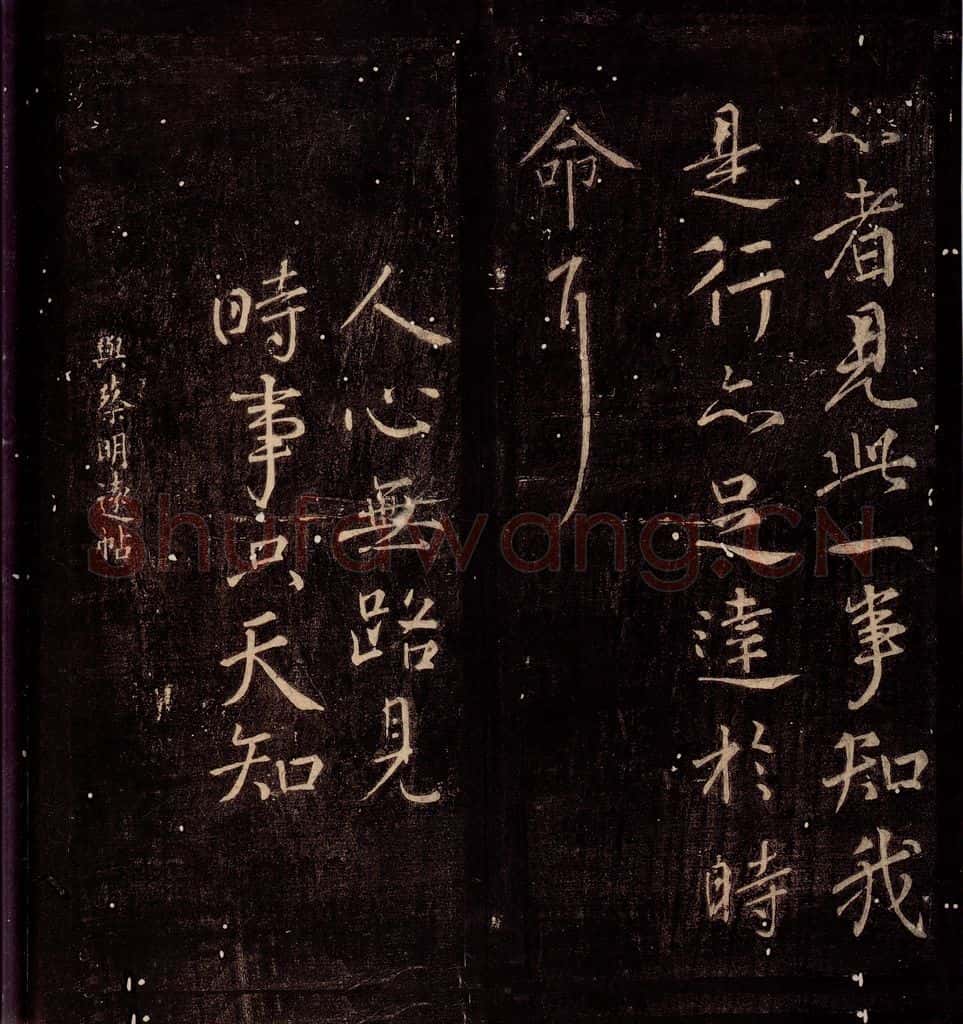 心者見此一事知我
是行亦足達於時
命耳
人心無路見
時事只天知
與蔡明遠帖
Shufawang.CN